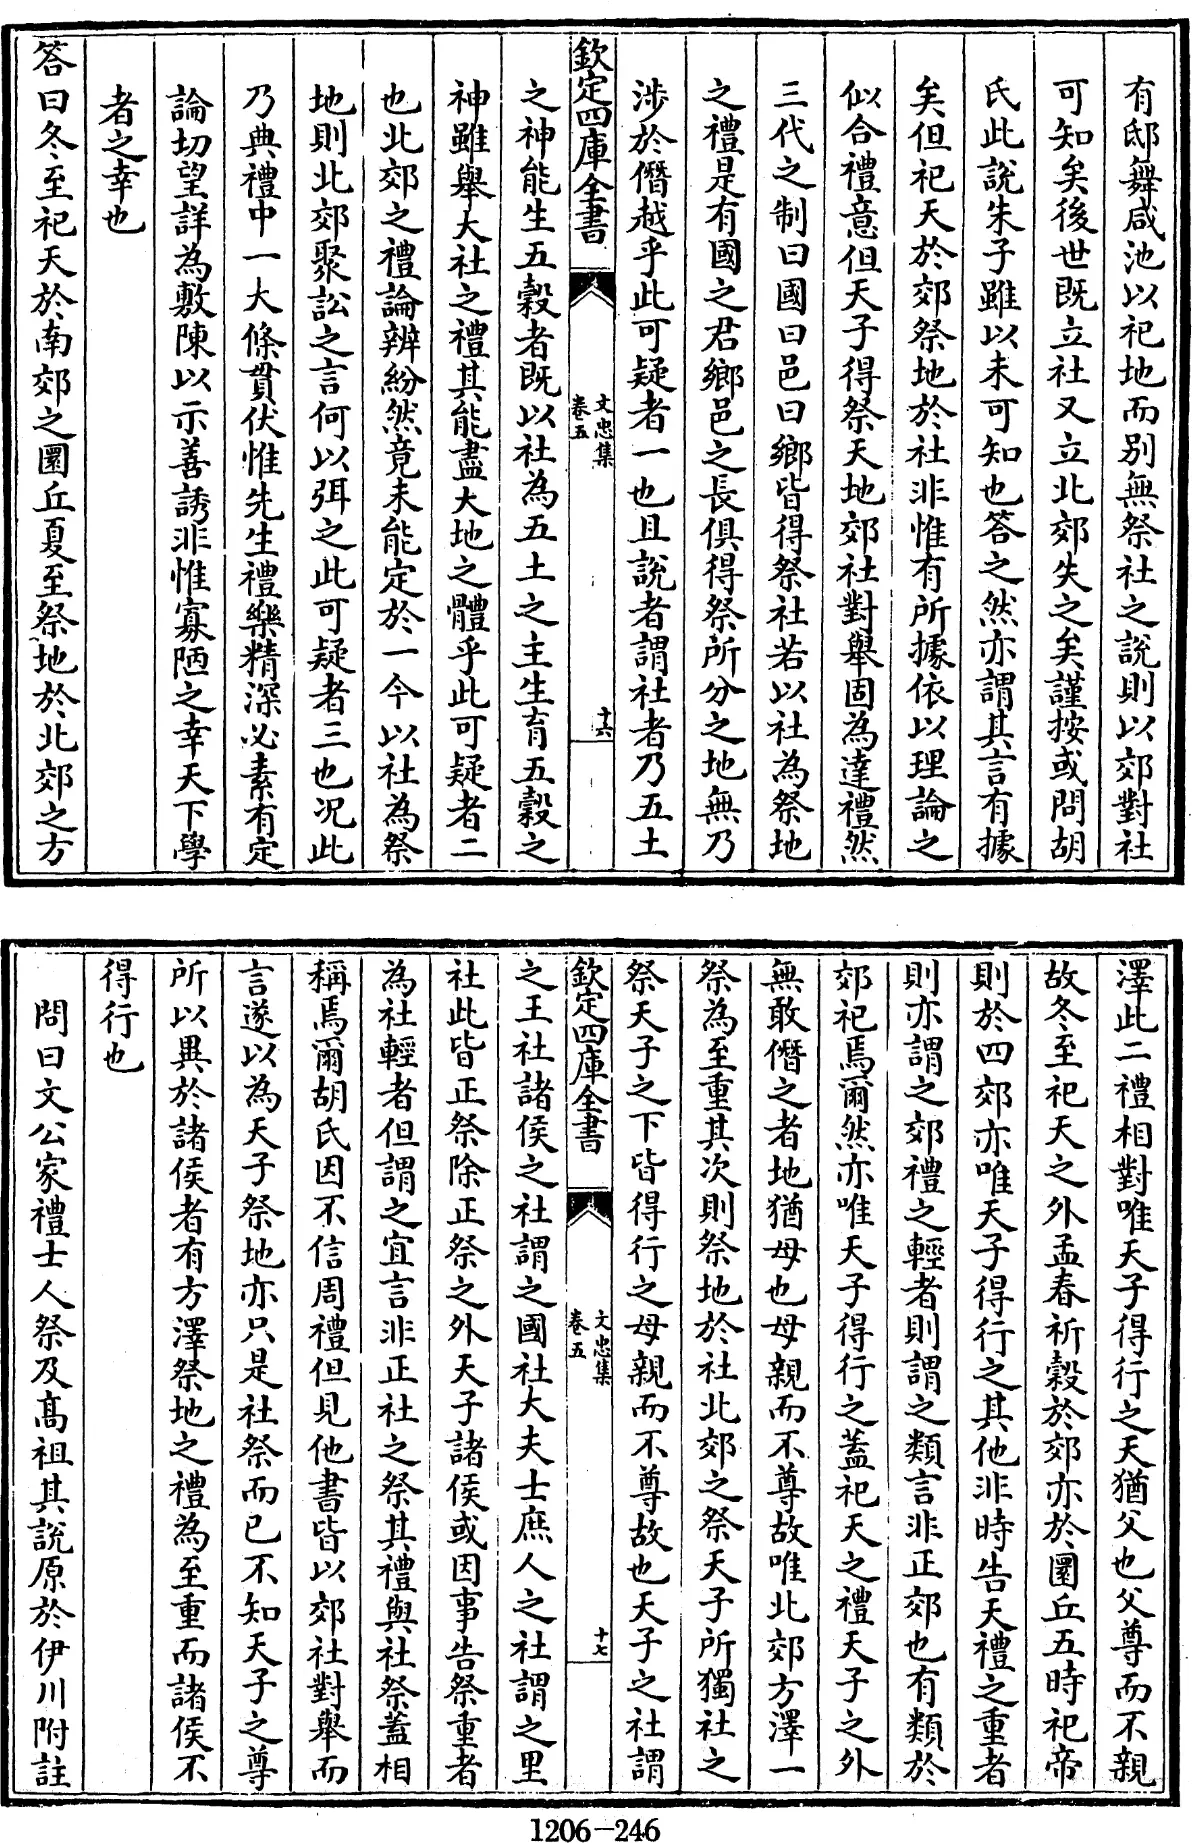 有邸舞咸池以祀地而别無祭社之說則以郊對社
可知矣後世既立社又立北郊失之矣謹按或問胡
氏此說朱子雖以未可知也答之然亦謂其言有據
矣但祀天於郊祭地於社非惟有所據依以理論之
似合禮意但天子得祭天地郊社對舉固為達禮然
三代之制曰國曰邑曰鄉皆得祭社若以社為祭地
之禮是有國之君鄉邑之長俱得祭所分之地無乃
涉於僭越乎此可疑者一也且說者謂社者乃五土
欽定四庫全書
文忠集
卷五
十六
之神能生五穀者既以社為五土之主生育五穀之
神雖舉大社之禮其能盡大地之體乎此可疑者二
也北郊之禮論辨紛然竟未能定於一今以社為祭
地則北郊聚訟之言何以弭之此可疑者三也況此
乃典禮中一大條貫伏惟先生禮樂精深必素有定
論切望詳為敷陳以示善誘非惟寡陋之幸天下學
者之幸也
答曰冬至祀天於南郊之圜丘夏至祭地於北郊之方
澤此二禮相對唯天子得行之天猶父也父尊而不親
故冬至祀天之外孟春祈穀於郊亦於圜丘五時祀帝
則於四郊亦唯天子得行之其他非時告天禮之重者
則亦謂之郊禮之輕者則謂之類言非正郊也有類於
郊祀焉爾然亦唯天子得行之蓋祀天之禮天子之外
無敢僭之者地猶母也母親而不尊故唯北郊方澤一
祭為至重其次則祭地於社北郊之祭天子所獨社之
祭天子之下皆得行之母親而不尊故也天子之社謂
欽定四庫全書
文忠集
卷五
十七
之王社諸侯之社謂之國社大夫士庶人之社謂之里
社此皆正祭除正祭之外天子諸侯或因事告祭重者
為社輕者但謂之宜言非正社之祭其禮與社祭蓋相
稱焉爾胡氏因不信周禮但見他書皆以郊社對舉而
言遂以為天子祭地亦只是社祭而已不知天子之尊
所以異於諸侯者有方澤祭地之禮為至重而諸侯不
得行也
問曰文公家禮士人祭及高祖其說原於伊川附註
1206-246